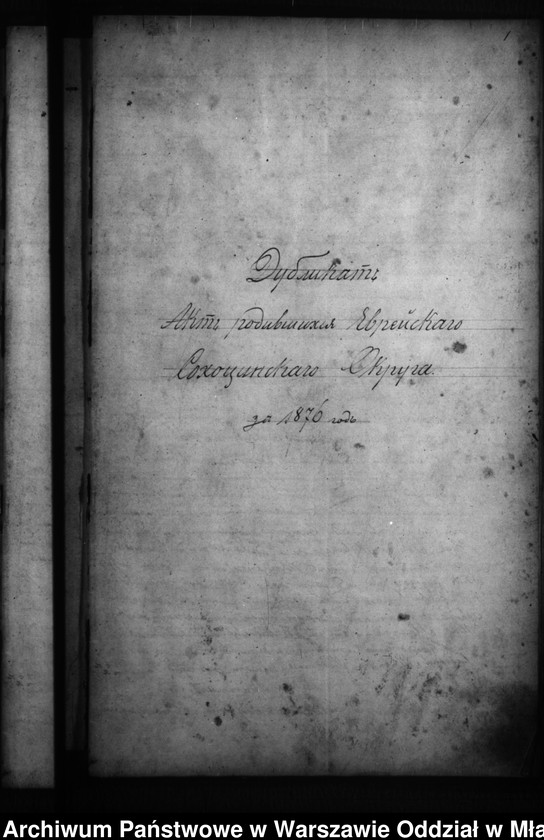 Дубликатъ
Актъ родившихся Еврейскаго
Сохоцинскаго Округа.
за 1876 годъ
Archiwum Państwowe w Warszawie Oddział w Mła